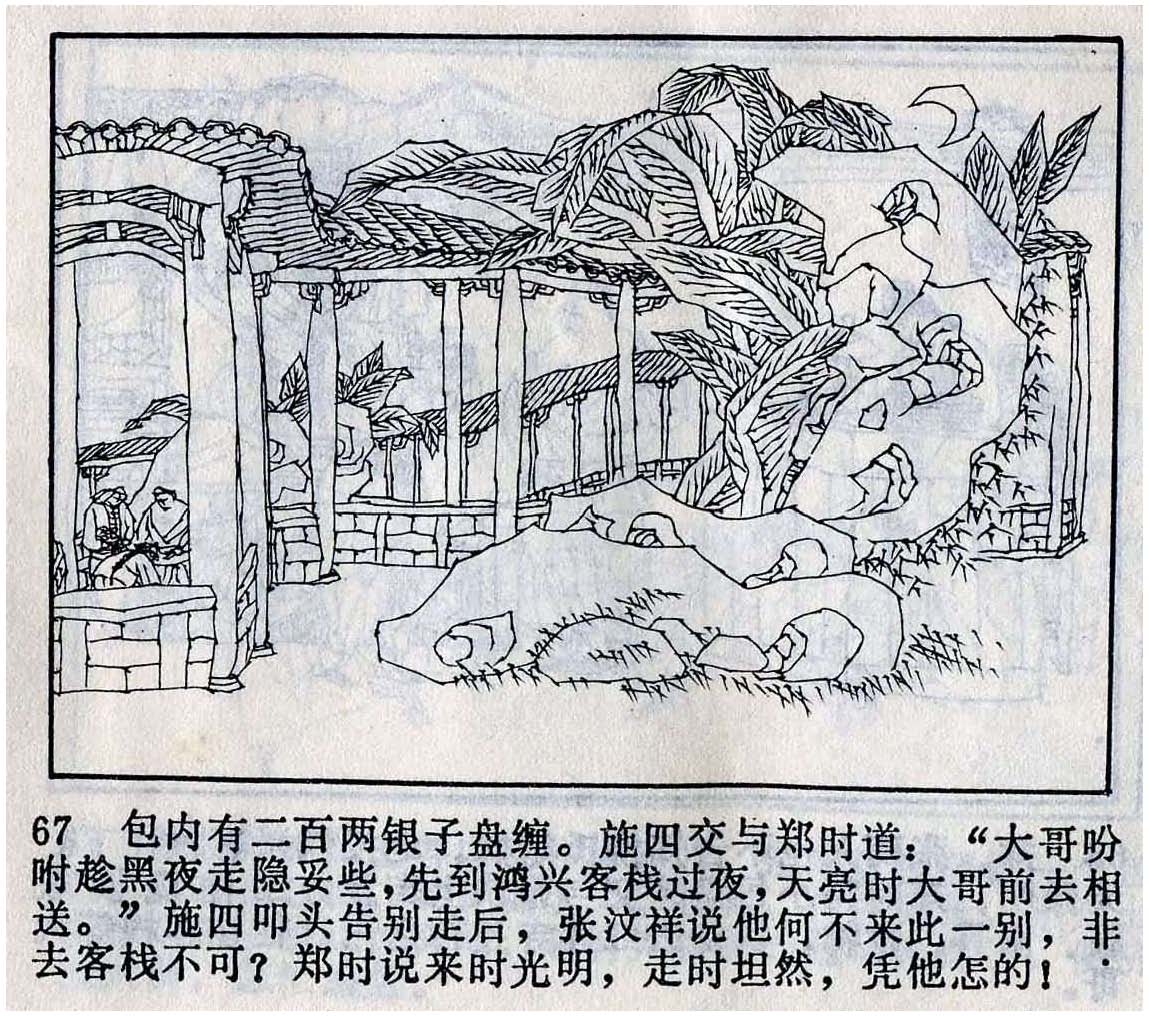 67 包内有二百两银子盘缠。施四交与郑时道：“大哥吩
咐趁黑夜走隐妥些，先到鸿兴客栈过夜，天亮时大哥前去相
送。”施四叩头告别走后，张汶祥说他何不来此一别，非
去客栈不可？郑时说来时光明，走时坦然，凭他怎的！